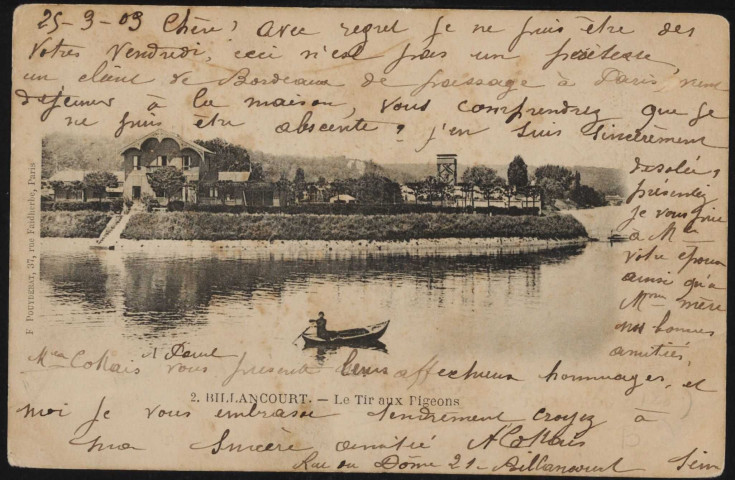 25-9-03 Chère, avec regret je ne puis être des
vôtres Vendredi, ceci n'est pas un prétexte,
un client de Bordeaux de passage à Paris, vient
déjeuner à la maison, vous comprendrez que je
ne puis être absente, j'en suis sincèrement
désolée,
présentez
je vous prie
à Mr
votre époux
ainsi qu'à
Mme mère
nos bonnes
amitiés,
vous présente leurs affectueux hommages, et
moi je vous embrasse tendrement croyez à
ma sincère amitié
Rue du Dôme 21 - Billancourt Sein
2. BILLANCOURT. — Le Tir aux Pigeons
F. POUYDEBAT, 37, rue Faidherbe, Paris